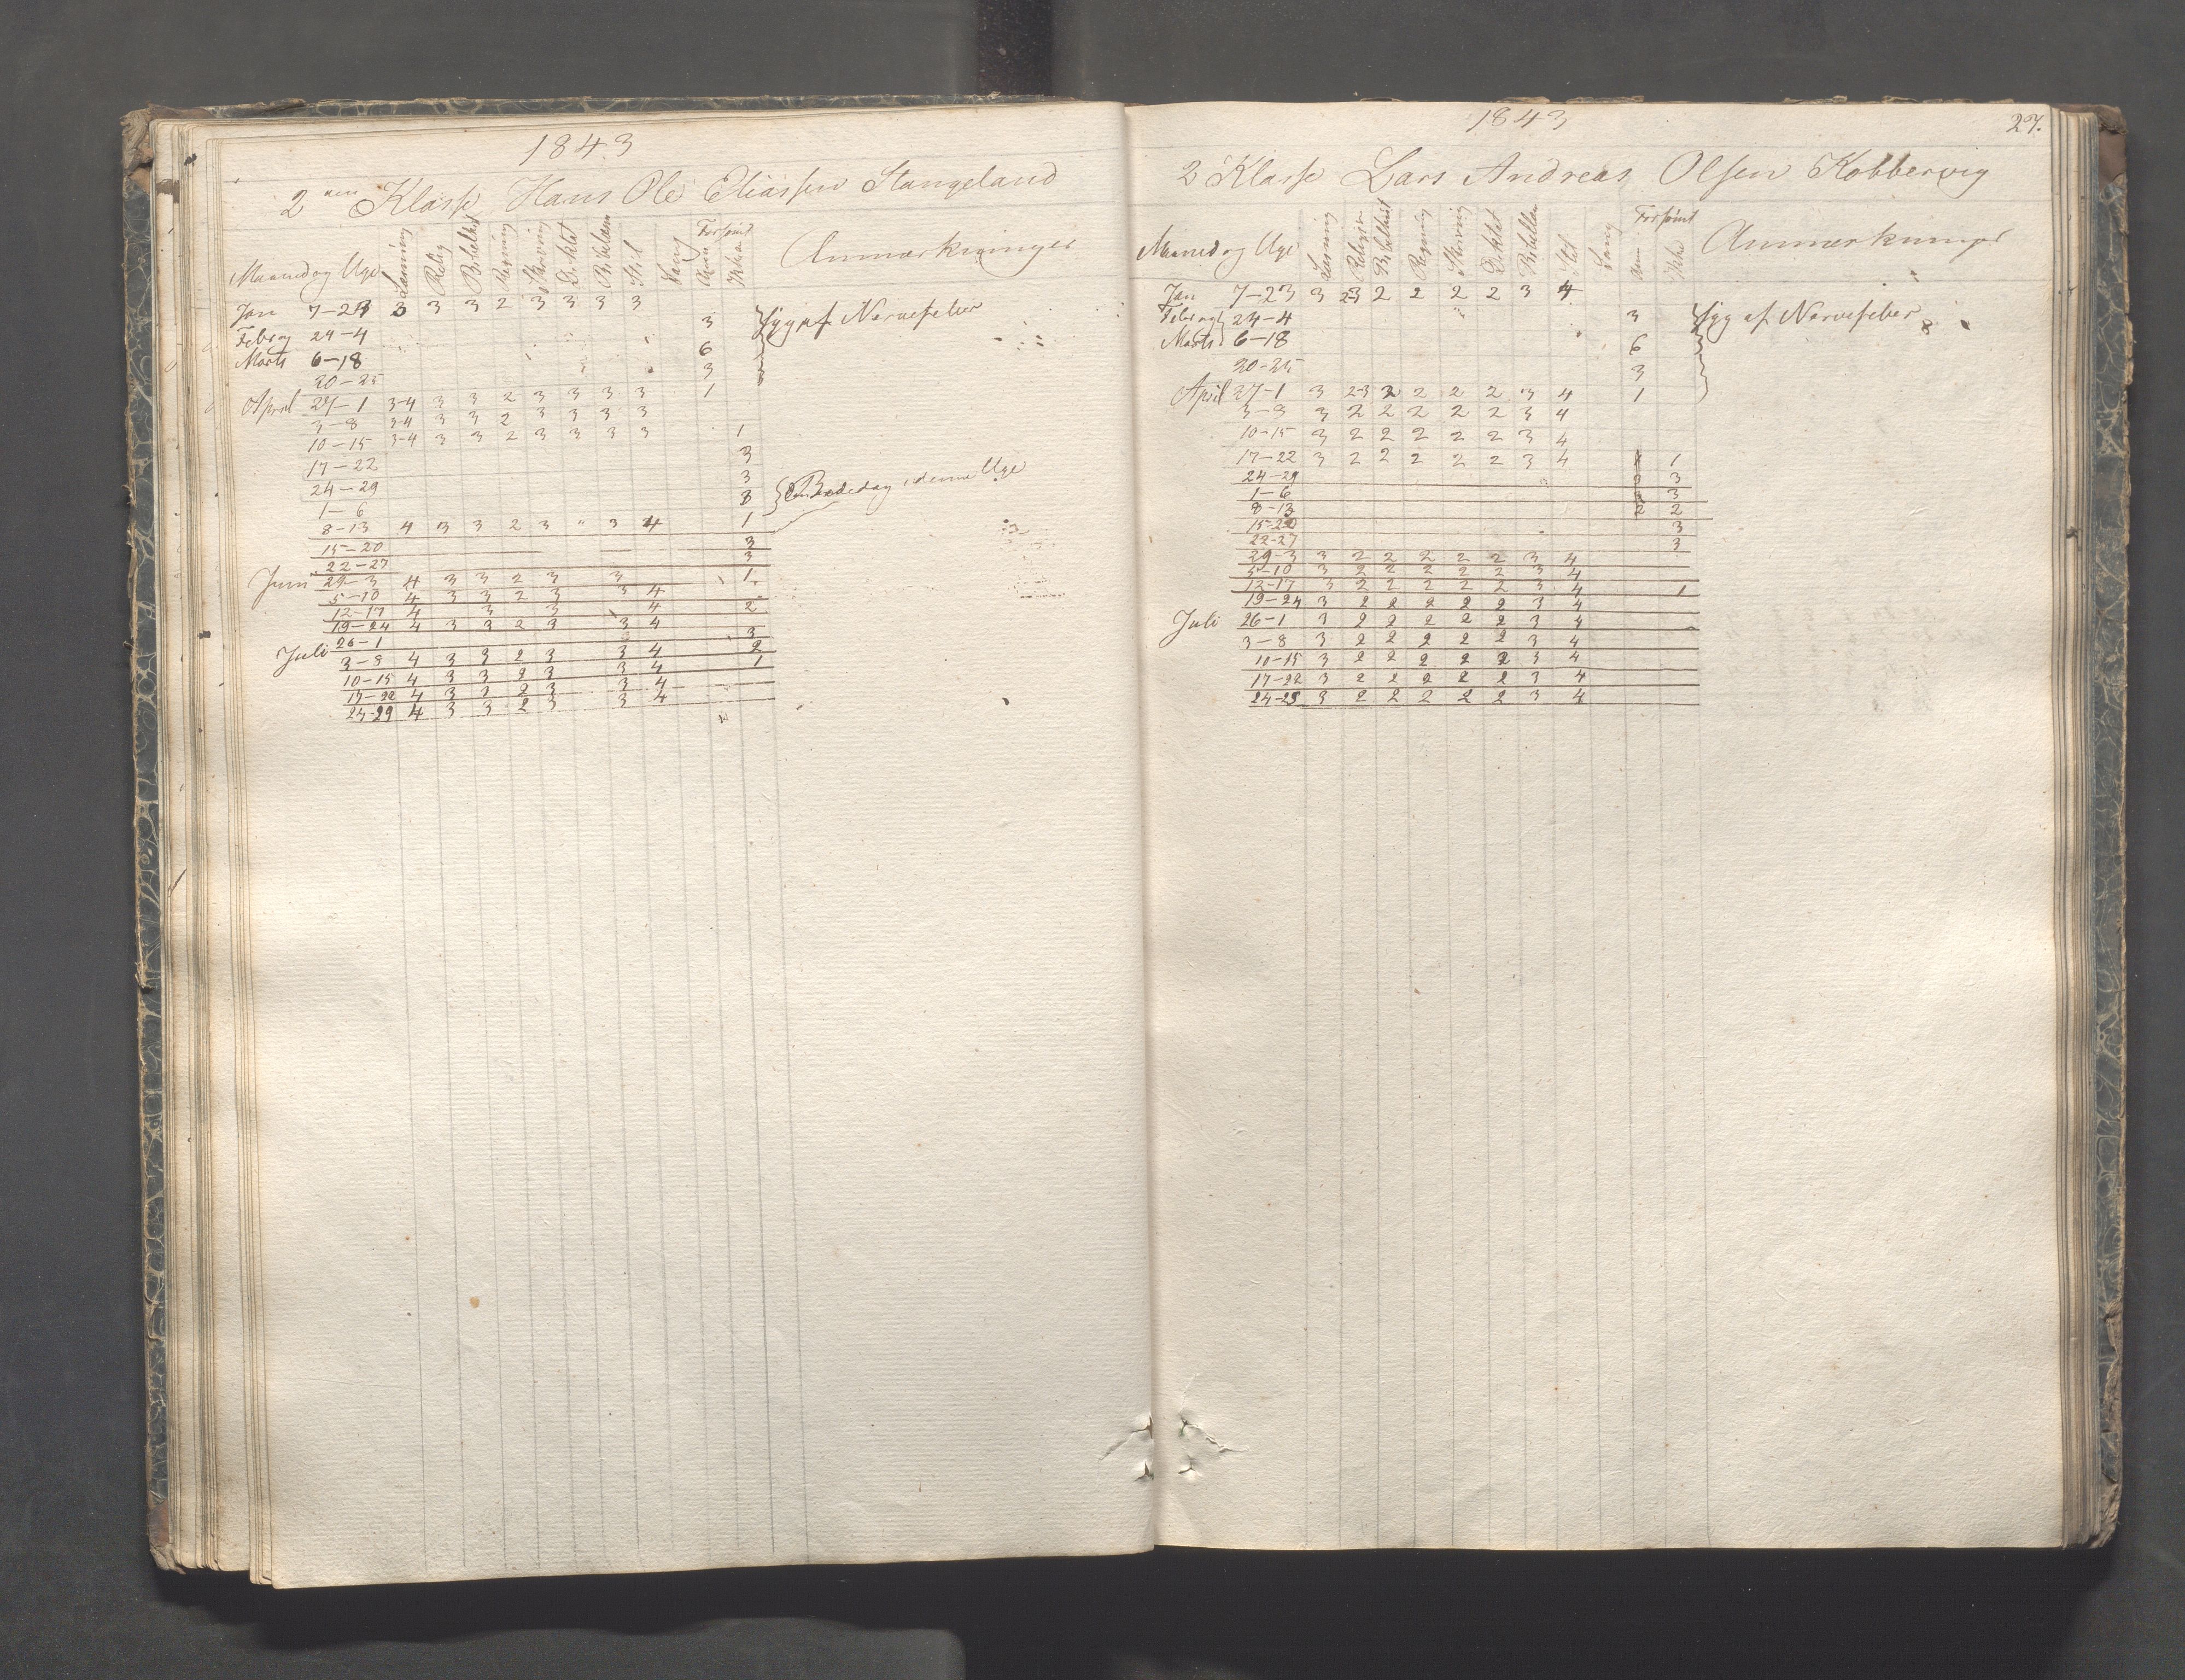 1843
2den Klasse Hans Ole Eliassen Stangeland
Maaned og Uge Læsning Relig Regning Skrivning Diktat Stil Sang Forsømt Anmærkninger
Jan 7-23 3 3 3 2 3 3 3 3
Febr og 24-4 3 Syg af Nervefeber
Marts 6-18 6
20-25 3
April 27-1 3-4 3 3 2 3 3 3 3 1
3-8 3-4 3 3 2 3 3 3 3
10-15 3-4 3 3 2 3 3 3 3 1
17-22 3
24-29 3
1-6 3 Bededag i denne Uge
8-13 4 3 3 2 3 " 3 4 1
15-20 3
22-27 3
Juni 29-3 4 3 3 2 3 3 1
5-10 4 3 3 2 3 3 4
12-17 4 3 3 4 2
19-24 4 3 3 2 3 3 4
Juli 26-1 3
3-8 4 3 3 2 3 3 4 2
10-15 4 3 3 2 3 3 4 1
17-22 4 3 3 2 3 3 4
24-29 4 3 3 2 3 3 4
1843
27.
2 Klasse Lars Andreas Olsen Kobbervig
Maaned og Uge Læsning Religion Regning Skrivning Diktat Stil Sang Forsømt Anmærkninger
Jan 7-23 3 2-3 2 2 2 2 3 4
Febr og 24-4 3 Syg af Nervefeber
Marts 6-18 6
20-25 3
April 27-1 3 2-3 2 2 2 2 3 4 1
3-8 3 2 2 2 2 2 3 4
10-15 3 2 2 2 2 2 3 4
17-22 3 2 2 2 2 2 3 4 1
24-29 3
1-6 3
8-13 2 2
15-20 3
22-27 3
29-3 3 2 2 2 2 2 3 4
5-10 3 2 2 2 2 2 3 4
12-17 3 2 2 2 2 2 3 4 1
19-24 3 2 2 2 2 2 3 4
Juli 26-1 3 2 2 2 2 2 3 4
3-8 3 2 2 2 2 2 3 4
10-15 3 2 2 2 2 2 3 4
17-22 3 2 2 2 2 2 3 4
24-29 3 2 2 2 2 2 3 4